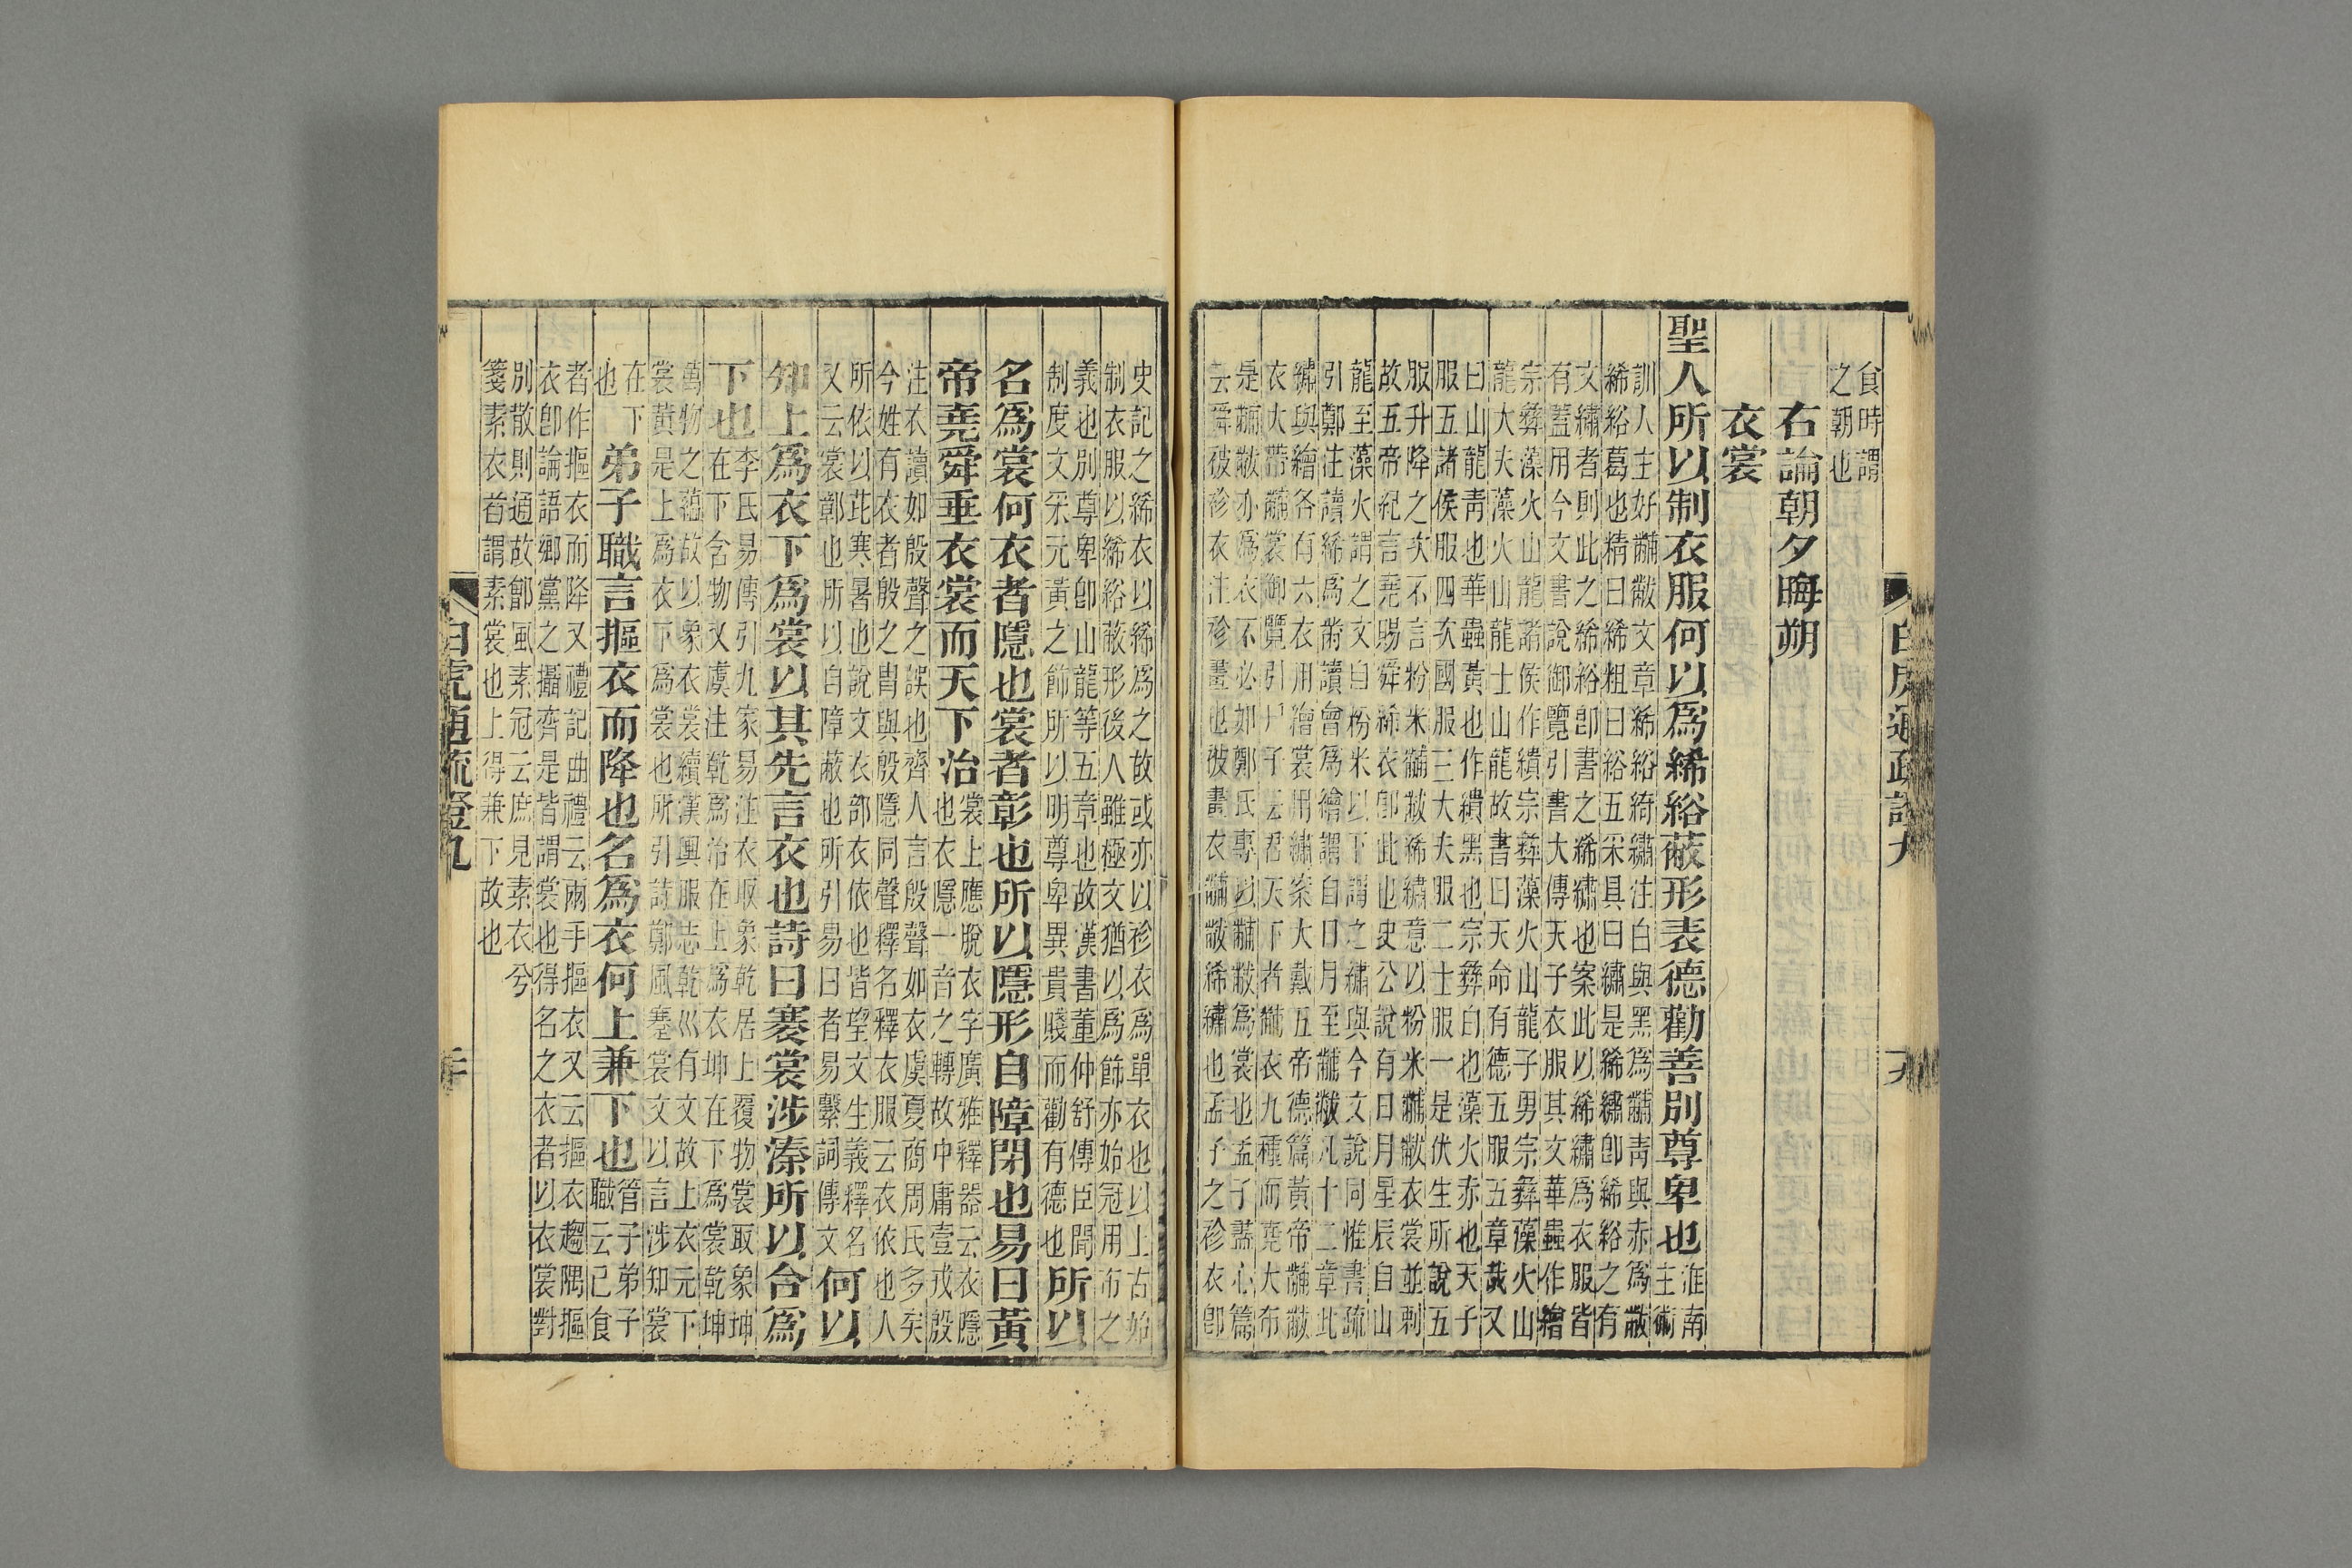 食時謂
之朝也
右論朝夕晦朔
衣裳
聖人所以制衣服何以爲絺綌蔽形表德勸善別尊卑也淮南
主術
訓人主好黼黻文章絺綌綺繡注白與黑爲黼青與赤爲黻
絺綌葛也精曰絺粗曰綌五采具曰繡是絺繡卽絺綌之有
文繡者則此之絺綌卽書之絺繡也案此以絺繡爲衣服皆
有蓋用今文書說御覽引書大傳天子衣服其文華蟲作繪
宗彝藻火山龍諸侯作繢宗彝藻火山龍子男宗彝藻火山
龍大夫藻火山龍士山龍故書曰天命有德五服五章哉又
曰山龍青也華蟲黃也作繢黑也宗彝白也藻火赤也天子
服五諸侯服四次國服三大夫服二士服一是伏生所說五
服升降之次不言粉米黼黻絺繡意以粉米黼黻衣裳並刺
故五帝紀言堯賜舜絺衣卽此也史公說有日月星辰自山
龍至藻火謂之文自粉米以下謂之繡與今文說同惟書疏
引鄭注讀絺爲黹讀會爲繪謂自日月至黼黻凡十二章此
繡與繪各有六衣用繪裳用繡案大戴五帝德篇黃帝黼黻
衣大帶黼裳御覽引尸子云君天下者黼衣九種而堯大布
是黼黻亦爲衣不必如鄭氏專以黼黻爲裳也孟子盡心篇
云舜被袗衣注袗畫也被畫衣黼黻絺繡也孟子之袗衣卽
史記之絺衣以絺爲之故或亦以袗衣爲單衣也以上古始
制衣服以絺綌蔽形後人雖極文猶以爲飾亦始冠用布之
義也別尊卑卽山龍等五章也故漢書董仲舒傳臣聞
制度文采元黃之飾所以明尊卑異貴賤而勸有德也所以
名爲裳何衣者隱也裳者彰也所以隱形自障閉也易曰黃
帝堯舜垂衣裳而天下治裳上應脫衣字廣雅釋器云衣隱
也衣隱一音之轉故中庸壹戎殷
注衣讀如殷聲之誤也齊人言殷聲如衣虞夏商周氏多矣
今姓有衣者殷之冑與殷隱同聲釋名釋衣服云衣依也人
所依以芘寒暑也說文衣部衣依也皆望文生義釋名
又云裳鄣也所以自障蔽也所引易曰者易繫詞傳文何以
知上爲衣下爲裳以其先言衣也詩曰褰裳涉溱所以合爲
下也李氏易傳引九家易注衣取象乾居上覆物裳取象坤
在下含物又虞注乾爲治在上爲衣坤在下爲裳乾坤
萬物之蘊故以象衣裳續漢輿服志乾巛有文故上衣元下
裳黃是上爲衣下爲裳也所引詩鄭風褰裳文以言涉知裳
在下
也弟子職言摳衣而降也名爲衣何上兼下也管子弟子
職云已食
者作摳衣而降又禮記曲禮云兩手摳衣又云摳衣趨隅摳
衣卽論語鄉黨之攝齊是皆謂裳也得名之衣者以衣裳對
別散則通故鄁風素冠云庶見素衣兮
箋素衣者謂素裳也上得兼下故也
白虎通疏證九